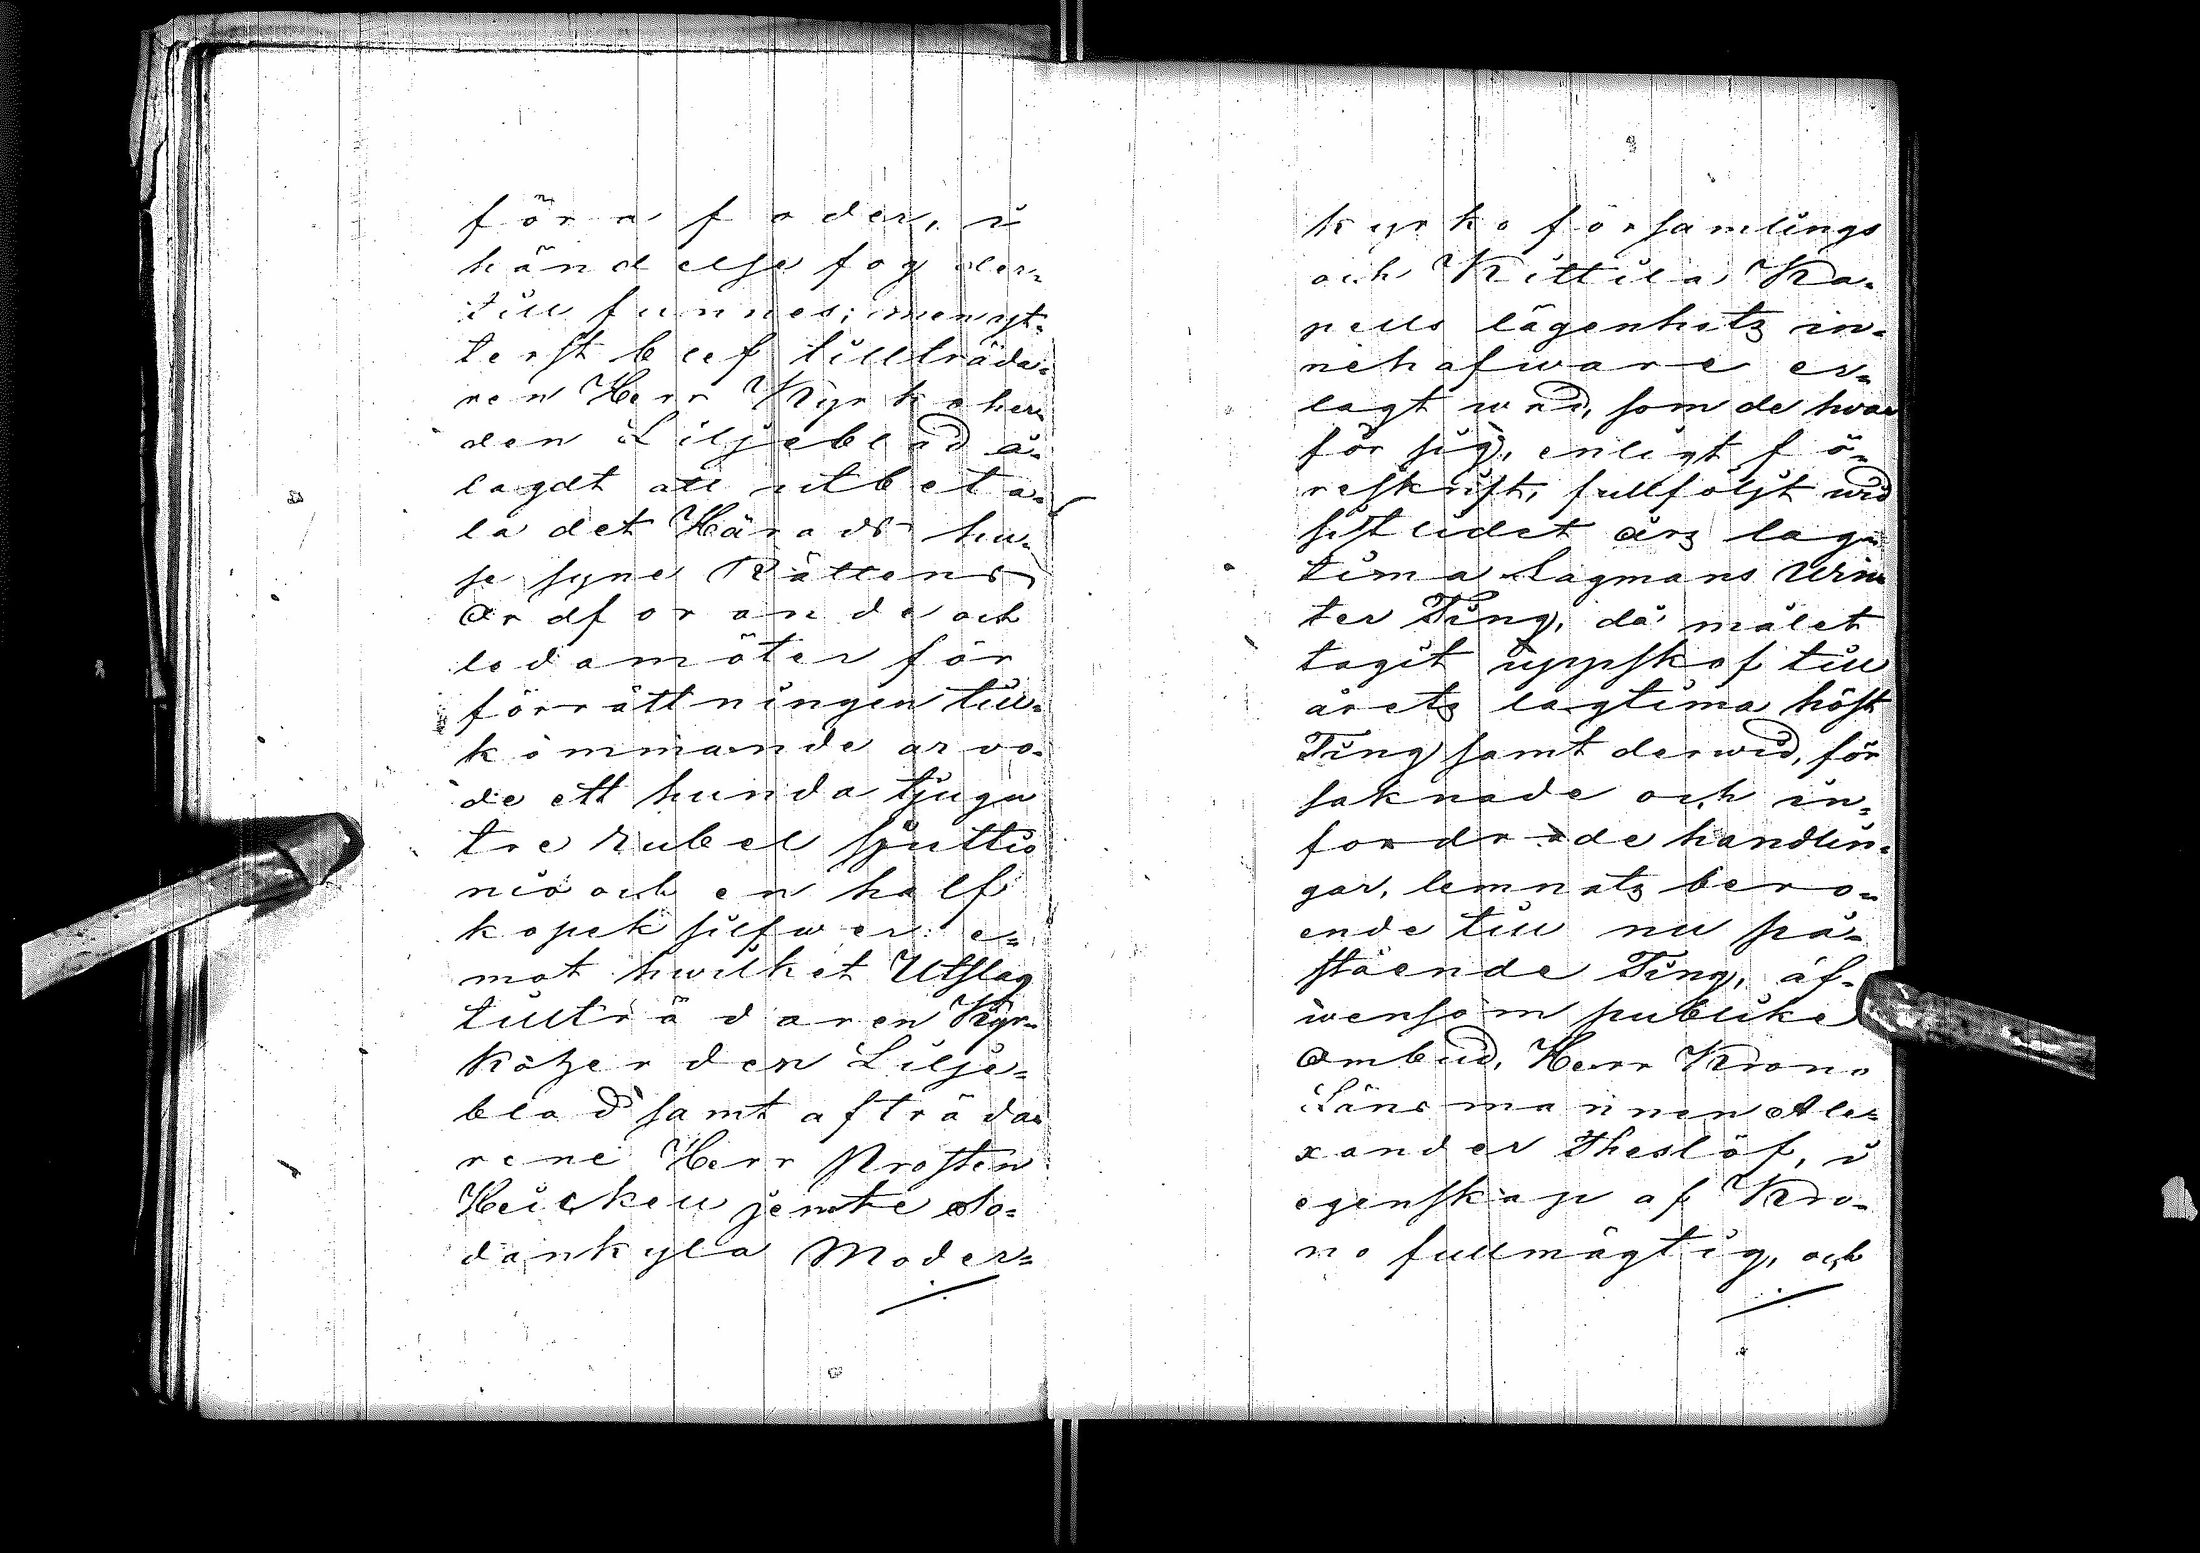 förafoder, i
händelse fog der=
till funnes; men yt=
terst blef tillträda=
ren Herr Kyrkoher=
den Liljeblad å=
lagdt att utbeta=
la det Härads hu=
se syne Rättens
ordforande och
ledamöter för
förrättningen till=
kommande arvo=
de ett hunda tjugu
tre rubel sjuttio
nio och en half
kopek silfwer e=
mot hwilket Utslag
tillträdaren Kyr=
koherden Lilje=
blad samt afträda=
rene Herr Prosten
Heickell jemte So=
dankyla Moder=
kyrko församlings
och Kittila Ka=
pells lägenhetz in=
nehafware er=
lagt wad, som de hvar
för sig, enligt fö=
reskrift, fullföljt wid
sistlidet årz lag=
tima Lagmans Win=
ter Ting, då målet
tagit uppskof till
åretz lagtima höst
Ting samt derwid, för
saknade och in=
fordrade handlin=
gar, lemnatz bero=
ende till nu på=
stående Ting, äf=
wensom publike
Ombud, Herr Krono
Länsmannen Ale=
xander Theslöf, i
egenskap af Kro=
no fullmägtig, och